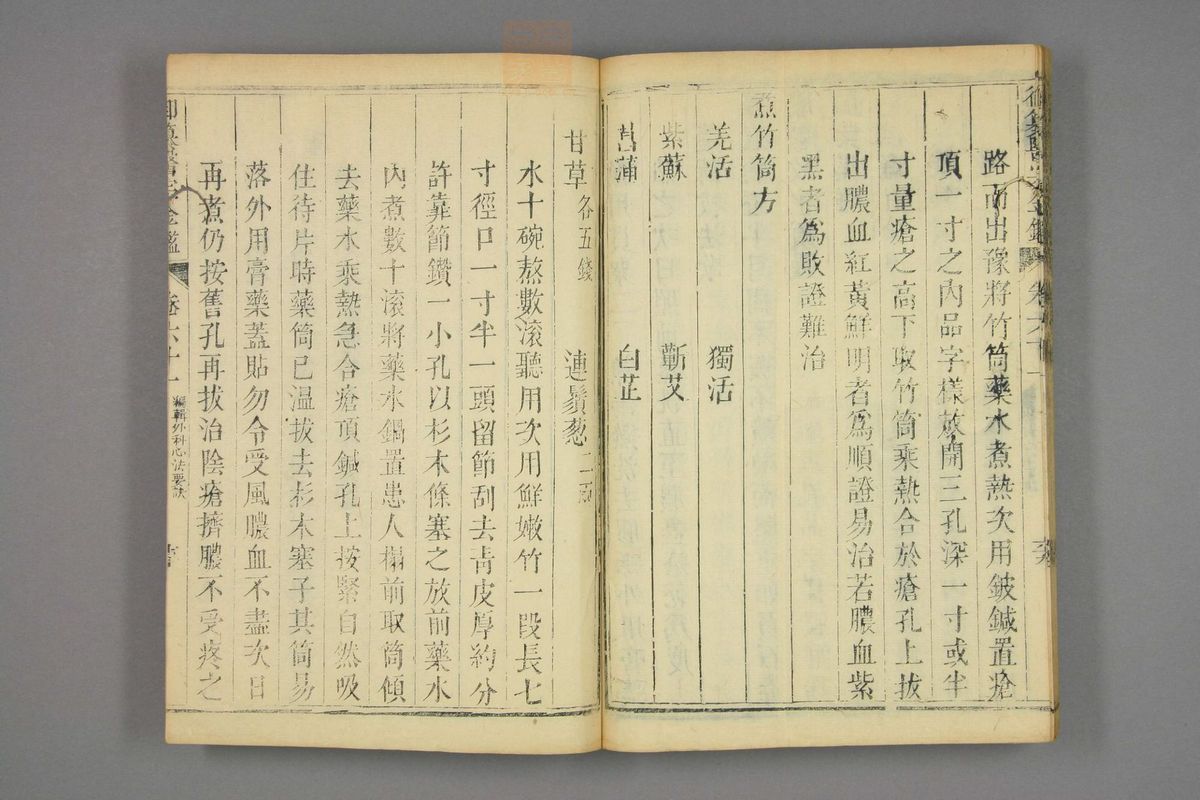 御纂醫宗金鑑 卷六十一
路而出豫將竹筒藥水煮熱次用鈹鍼置瘡
頂一寸之內品字樣放開三孔深一寸或半
寸量瘡之高下取竹筒乘熱合於瘡孔上拔
出膿血紅黃鮮明者為順證易治若膿血紫
黑者為敗證難治
煮竹筒方
羌活 獨活
紫蘇 蘄艾
菖蒲 白芷
甘草各五錢 連鬚葱二兩
水十碗熬數滾聽用次用鮮嫩竹一段長七
寸徑口一寸半一頭留節刮去青皮厚約分
許靠節鑽一小孔以杉木條塞之放前藥水
內煮數十滾將藥水鍋置患人榻前取筒傾
去藥水乘熱急合瘡頂鍼孔上按緊自然吸
住待片時藥筒已溫拔去杉木塞子其筒易
落外用膏藥蓋貼勿令受風膿血不盡次日
再煮仍按舊孔再拔治陰瘡擠膿不受疼之
御纂醫宗金鑑 卷六十一 編輯外科心法要訣